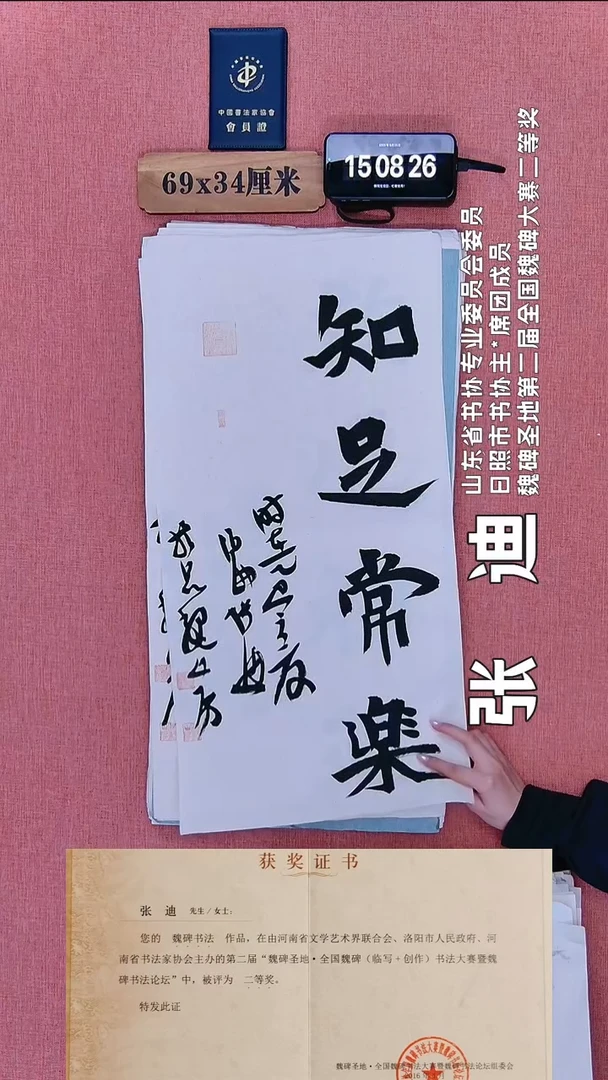 中國書法家協會
會員證
69x34厘米
15 08 26
知足常樂
山东省书协专业委员会委员
日照市书协主*席团成员
魏碑圣地第二届全国魏碑大赛二等奖
张 迪
获奖证书
张 迪 先生/女士:
您的 魏碑书法 作品,在由河南省文学艺术界联合会、洛阳市人民政府、河
南省书法家协会主办的第二届“魏碑圣地·全国魏碑(临写+创作)书法大赛暨魏
碑书法论坛”中,被评为 二等奖。
特发此证
魏碑圣地·全国魏碑书法大赛暨魏碑书法论坛组委会